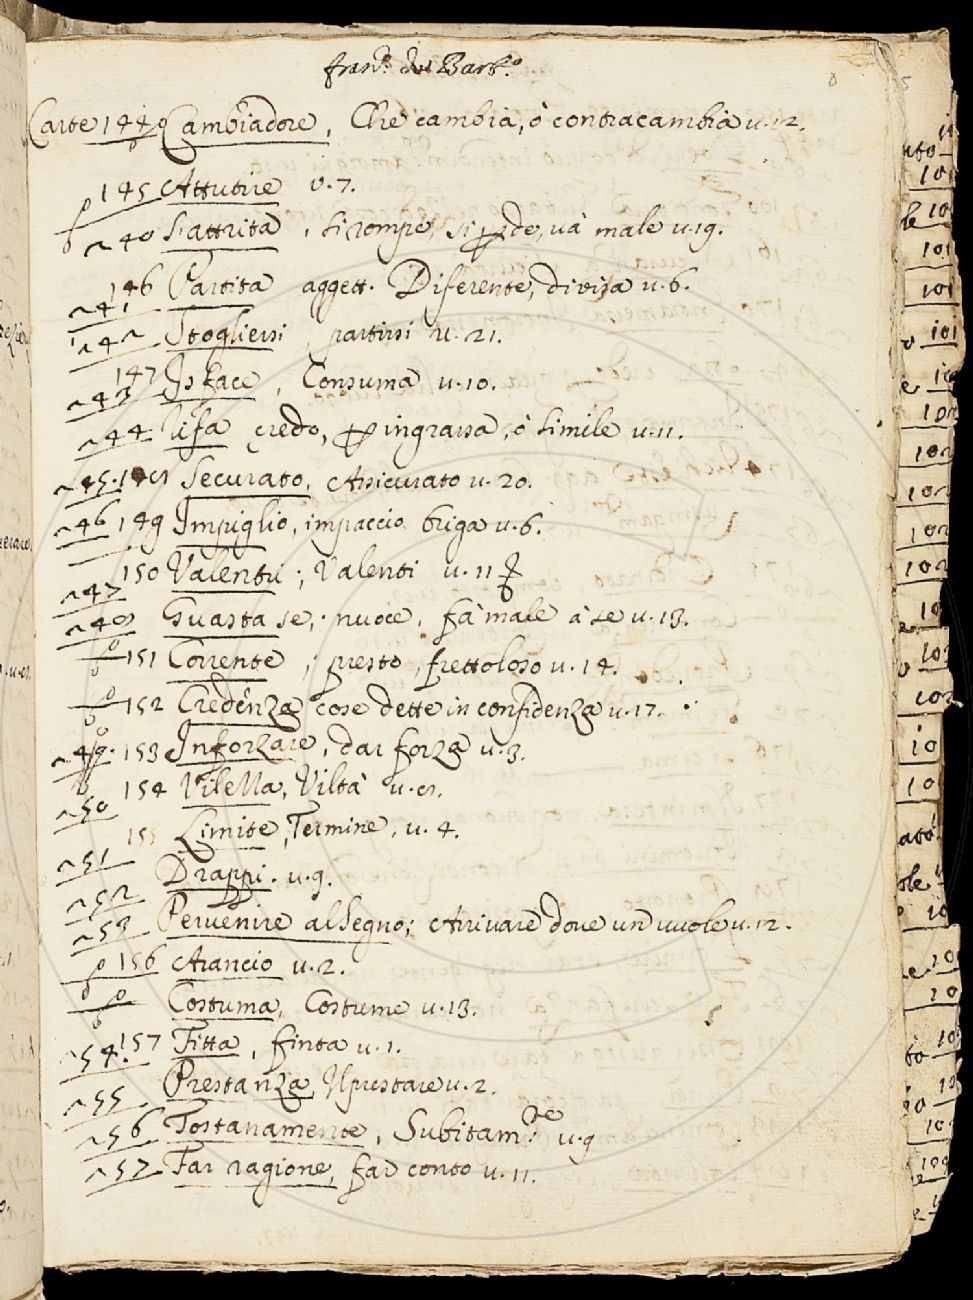 fran.º da Barb.º
Carte 144 Cambiadore, Che cambia, ò contracambia u. 12.
145 Attutire u. 7.
40 S'attrita, si rompe, si perde, uà male u. 19.
146 Partita aggett. Diferente, divisa u. 6.
41
42 Stogliersi, partirsi u. 21.
147 Isface, Consuma u. 10.
43
44 credo, per ingrassa, ò simile u. 11.
45. 148 Securato, Assicurato u. 20.
46 149 Impiglio, impaccio briga u. 6.
150 Valentri; Valenti u. 11
47
48 Guasta se; nuoce, fà male à se u. 13.
151 Corrente; presto, frettoloso u. 14.
152 Credenza cose dette in confidenza u. 17.
49. 153 Inforzare, dar forza u. 3.
154 Vilella, Viltà u. 8.
50
155 Limite, Termine, u. 4.
51
Drappi. u. 9.
52
53 Pervenire al segno; Arrivare dove un vuole u. 12.
156 Arancio u. 2.
Costuma, Costume u. 13.
54. 157 Fitta, finta u. 1.
55 Prestanza, Il prestare u. 2.
56 Tostanamente, Subitam.te u. 9
57 Far ragione, far conto u. 11.